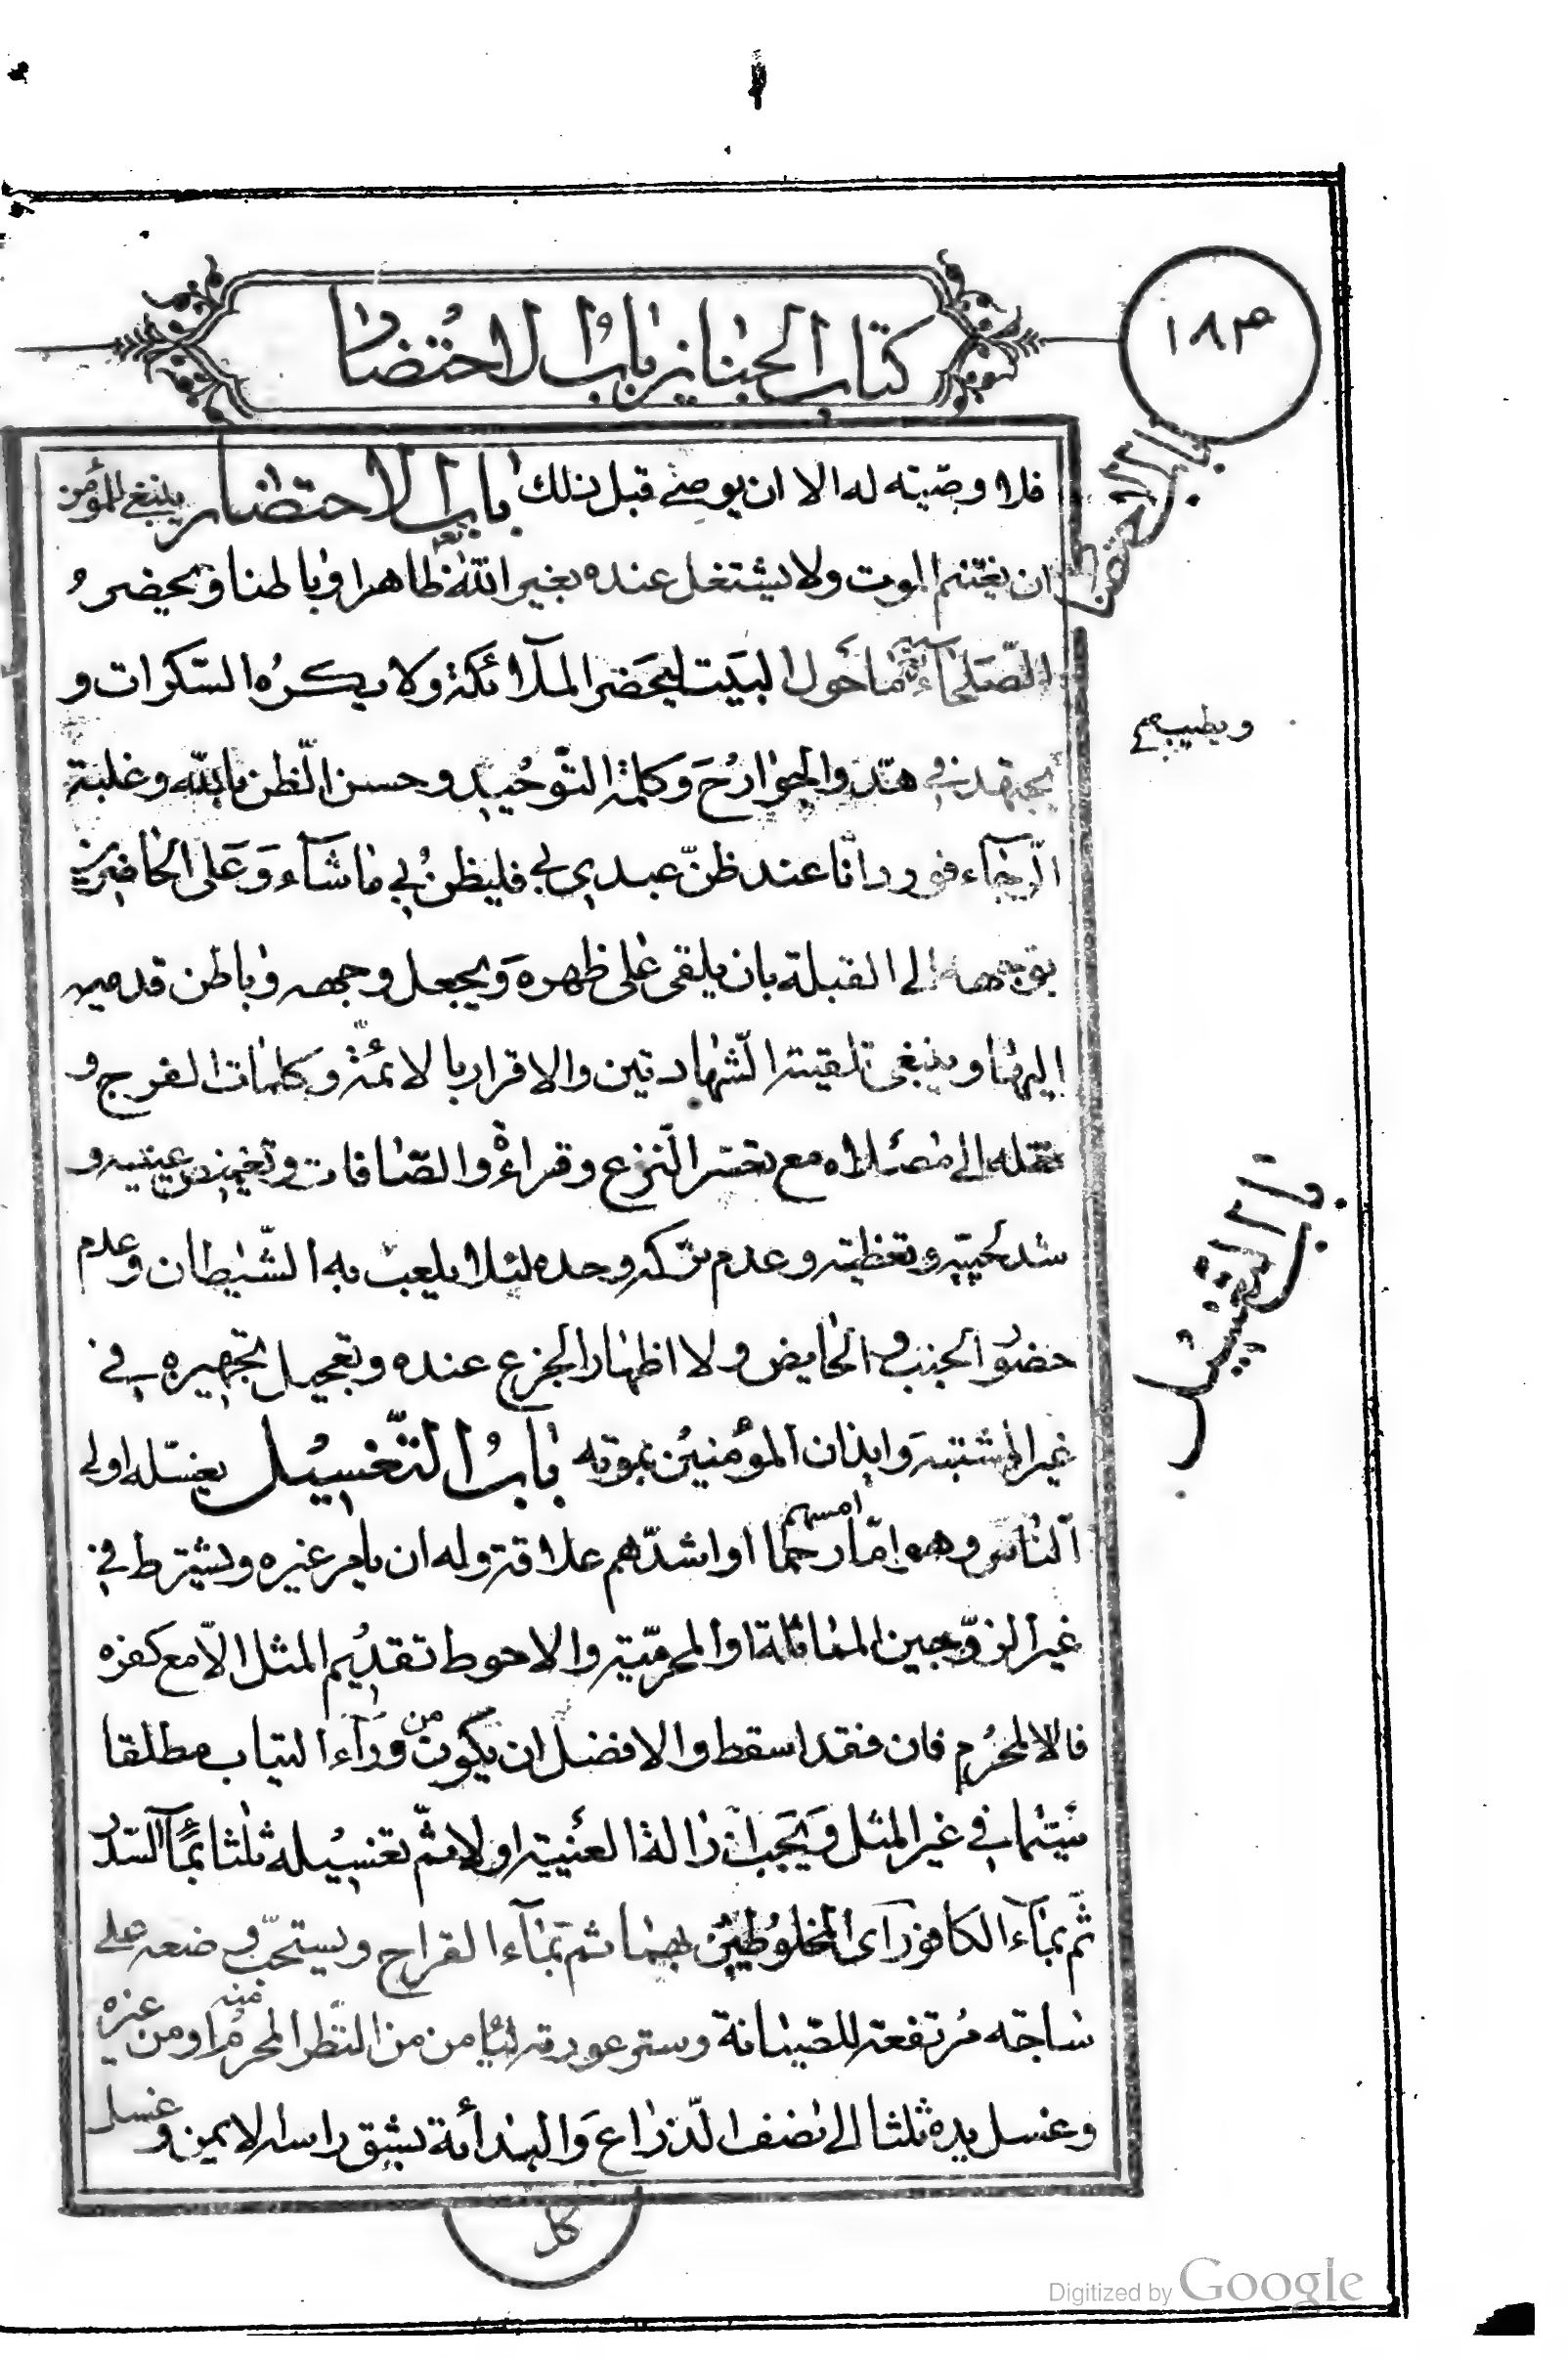 ١٨٣
كتاب الجنايز باب الاحتضار
فلا وصيّته له الا ان يوصي قبل ذلك باب الاحتضار ينبغي للمؤمن
ان يغتنم الموت ولا يشتغل عنده بغير الله ظاهرا وباطنا ويحضر
الصّلحآء ما حول البيت ليحضر الملآئكة ولا يكره السّكرات و
يجتهد في والجوارح وكلمة التّوحيد وحسن الظّن بالله وغلبة
الرّجآء فورد انا عند ظنّ عبدي بي فليظنّ بي ما شآء وعلى الحاضرين
توجيهه الى القبلة بان يلقى على ظهره ويجعل وجهه وباطن قدميه
اليها وينبغي تلقينه الشّهادتين والاقرار بالائمّة وكلمات الفرج و
نقله الى مصلاه مع تعسّر النّزع وقراءة والصّافات وتغميض عينيه و
شد لحييه وتغطيته وعدم تركه وحده لئلا يلعب به الشّيطان وعدم
حضور الجنب والحايض ولا اظهار الجزع عنده وتعجيل تجهيزه في
غير المشتبه وايذان المؤمنين بموته باب التّغسيل يغسّله اولى
النّاس وهو امّا رحما امسهم او اشدّهم علاقة وله ان يامر غيره ويشترط في
غير الزوّجين المماثلة او المحرميّة والاحوط تقديم المثل الّا مع كفره
فالا لمحرم فان فقد اسقط والافضل ان يكون من ورآء الثياب مطلقا
سيّما في غير المثل ويجب ازالة العينية اولا ثمّ تغسيله ثلثا بمآء السّدر
ثمّ بمآء الكافور اى المخلوطين بهما ثم بمآء القراح ويستحبّ وضعه على
ساجة مرتفعة للصّيانة وستر عورته ليامن من النّظر المحرم منه او من غيره
وغسل يده ثلثا الى نصف الذّراع والبدأة بشق راسه الايمن وغسل
كل
باب الاحتضار
ويطيب بهم
باب التغسيل
Digitized by Google